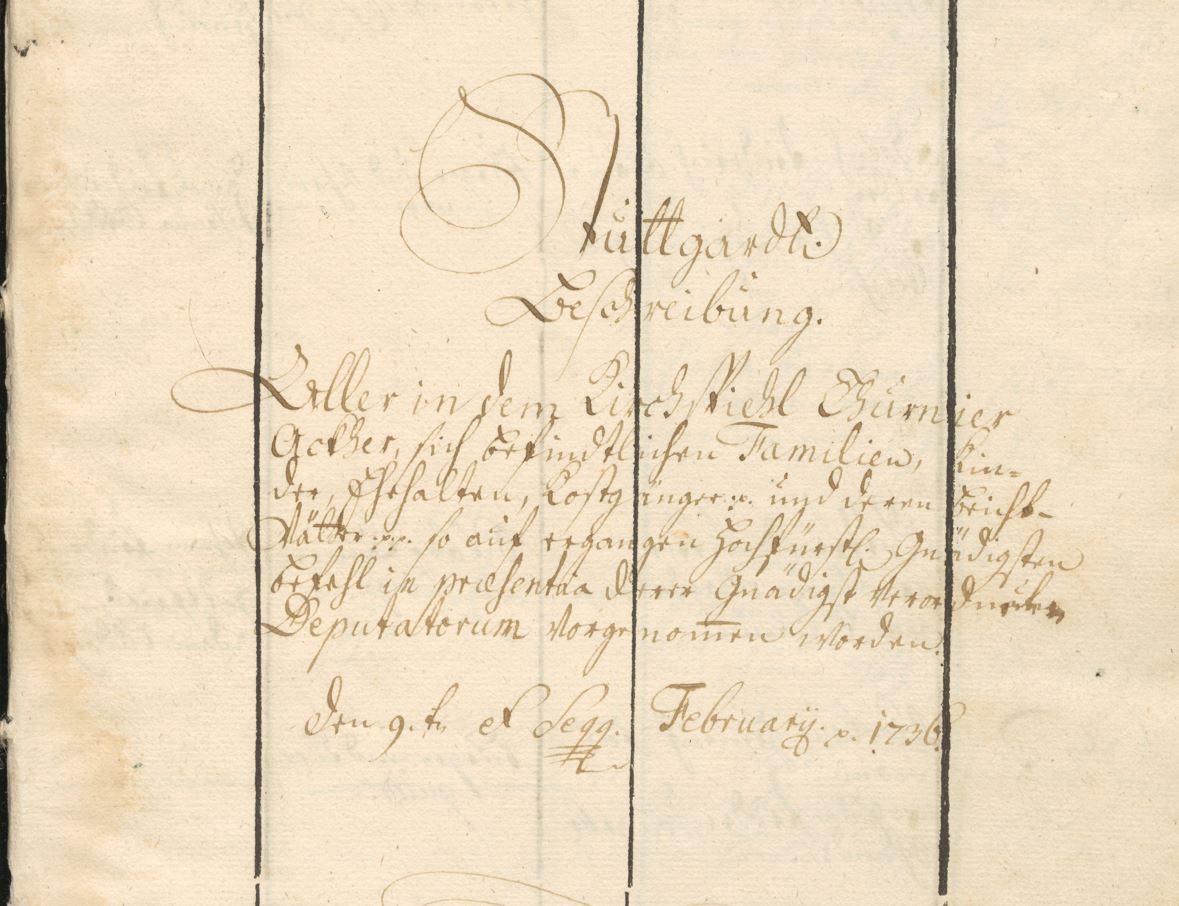 Stuttgardt.
Beschreibung.
Aller in dem Kirchspiehl Thurnier
Ackher, sich befindtlichen Familien, Kin=
der, Ehehalten, Kostgänger p. und deren Beicht-
Vätter p.p. so auf ergangen Hochfürstl. Gnädigsten
Befehl in præsentia derer Gnädigst Verordneten
Deputatorum Vorgenommen worden.
Den 9.t. et Seqq. February p. 1736.